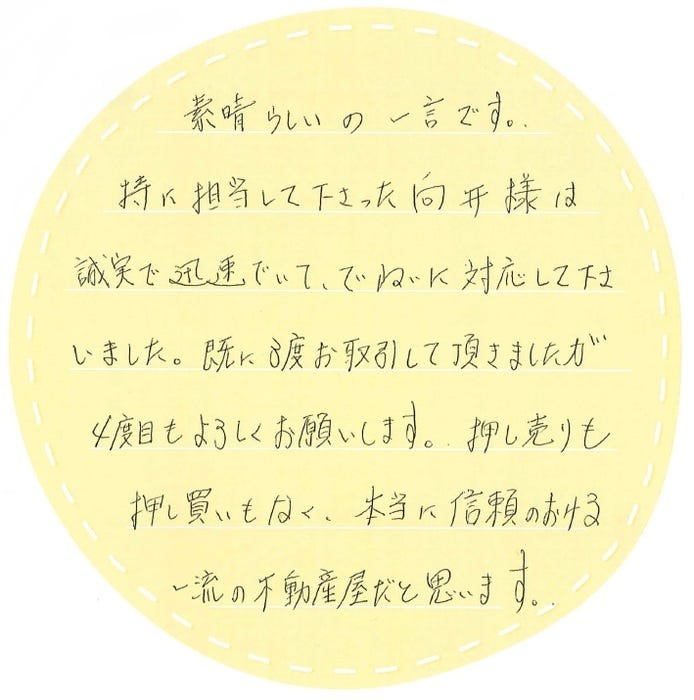 素晴らしいの一言です。
特に担当して下さった向井様は
誠実で迅速でいて、ていねいに対応して下さ
いました。既に3度お取引して頂きましたが
4度目もよろしくお願いします。押し売りも
押し買いもなく、本当に信頼のおける
一流の不動産屋だと思います。